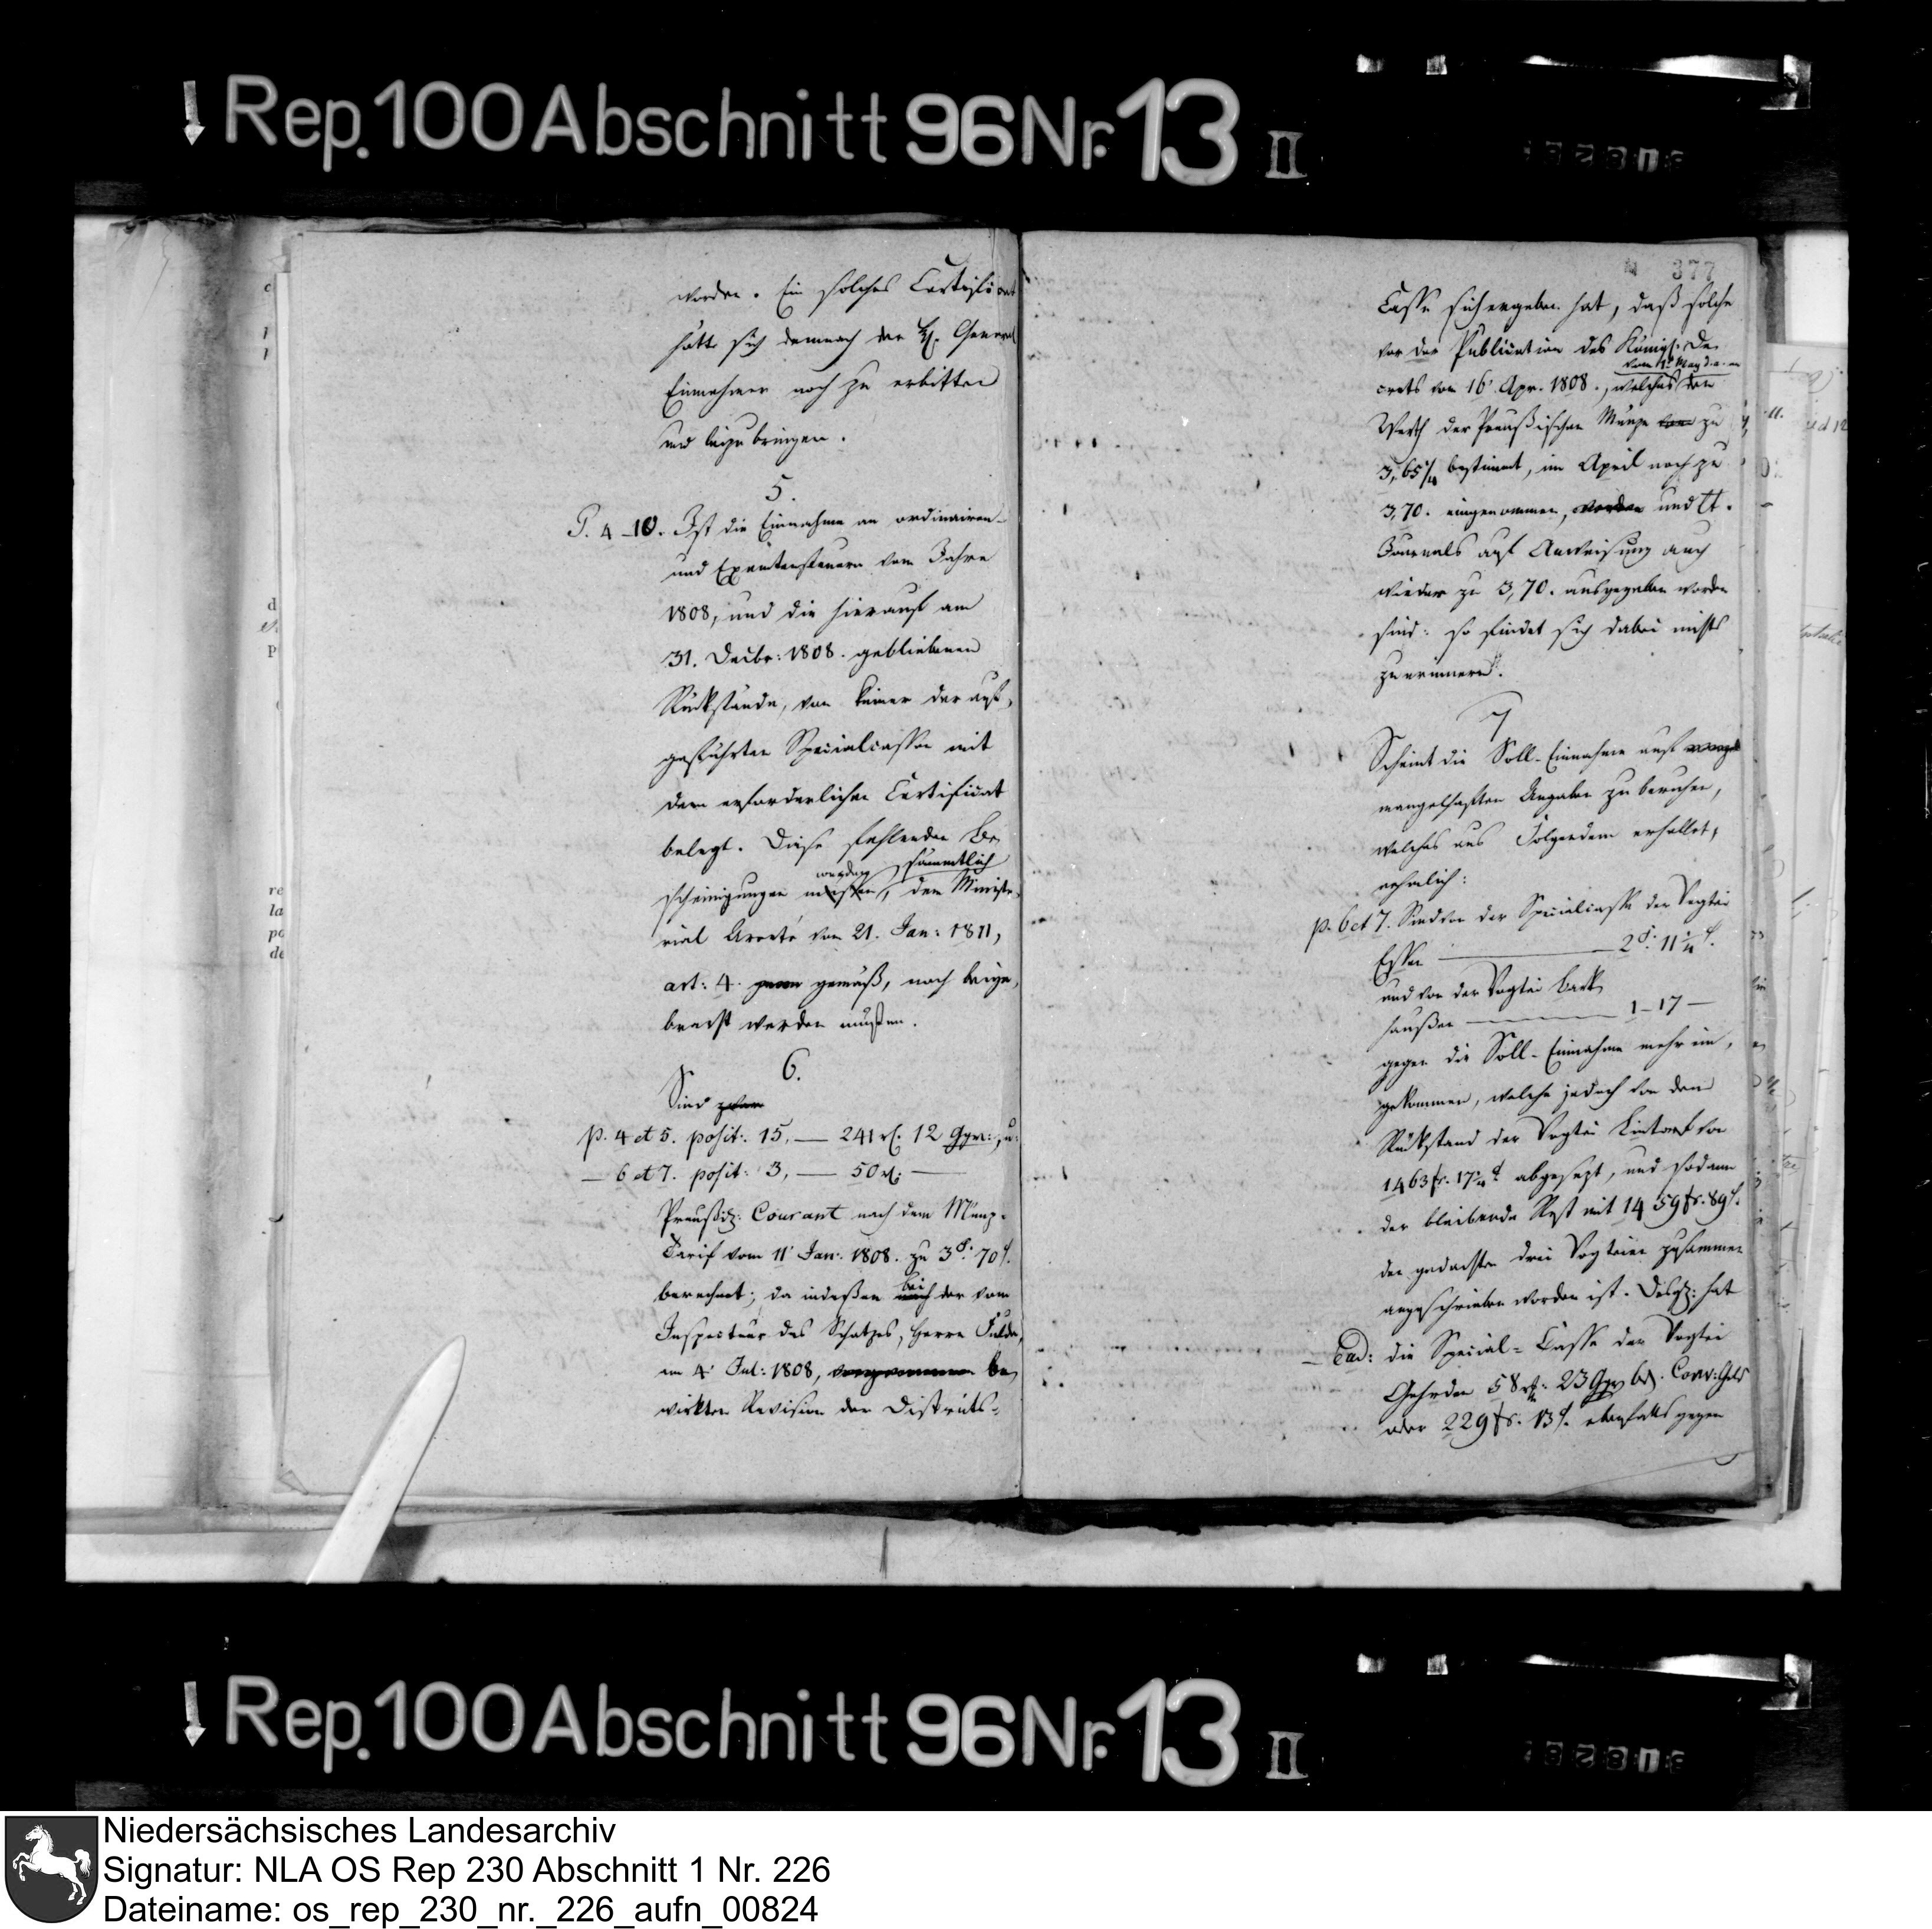 Rep. 100 Abschnitt 96 Nr. 13 II
worden. Ein solches Certificat
hätte sich demnach der H. General
Einnehmer noch zu erbitten
und beizubringen.
5.
P. 4-10. Ist die Einnahme an ordinairen
und Exemtensteuern vom Jahre
1808, und die hierauf am
31. Decbr: 1808. gebliebenen
Rückstände, von keiner der auf-
geführten Specialcassen mit
dem erforderlichen Certificat
belegt. Diese fehlenden Be-
sämmtlich
scheinigungen werden, dem Ministe-
rial Arreté vom 21. Jan: 1811,
art: 4. gemäß, noch beige-
bracht werden müßen.
6.
Sind zwar
p. 4 et 5. posit: 15, — 241 rl. 12 Ggr:, u:
— 6 et 7. posit: 3, — 50 rl. —
Preußisch: Courant nach dem Münz-
Tarif vom 11' Jan: 1808. zu 3 f. 70 c.
berechnet; da indeßen bei der vom
Inspecteur des Schatzes, Herrn Fulda,
im 4' Jul: 1808, be-
wirkten Revision der Districts-
377
Casse sich ergeben hat, daß solche
vor der Publication des Königl. De-
vom 1. May d. a. an
crets vom 16' Apr. 1808., welches den
Werth der Preußischen Münze zu
3,65 1/4 bestimmt, im April noch zu
3,70. eingenommen, worden und lt.
Journals auf Anweisung auch
wieder zu 3,70. ausgegeben worden
sind: so findet sich dabei nichts
zu erinnern.
7
Scheint die Soll-Einnahme auf
mangelhaften Angaben zu beruhen,
welches aus Folgendem erhellet,
nehmlich:
p. 6 et 7. Sind von der Specialcasse der Vogtei
Essen — 2 f. 11 1/4 c.
und von der Vogtei Bark-
hausen — 1 – 17 —
gegen die Soll-Einnahme mehr ein-
gekommen, welche jedoch von dem
Rückstand der Vogtei Lintorf von
1463 fr. 17 1/4 c abgesezt, und sodann
der bleibende Rest mit 1459 fr. 89 c.
den gedachten drei Vogteien zusammen
angeschrieben worden ist. Desgl: hat
— Ead: die Special-Casse der Vogtei
Gehrden 58 rt. 23 Ggr 6 d. Conv: Geld
oder 229 fr. 13 c. ebenfalls gegen
Rep. 100 Abschnitt 96 Nr. 13 II
Niedersächsisches Landesarchiv
Signatur: NLA OS Rep 230 Abschnitt 1 Nr. 226
Dateiname: os_rep_230_nr._226_aufn_00824